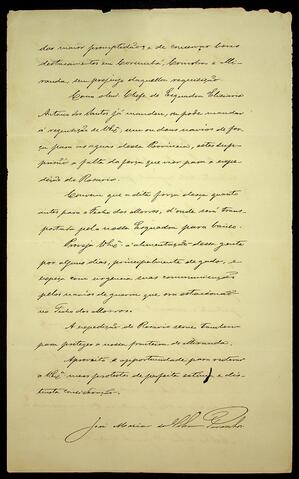 das maior promptidão, e de conservar bons
destacamentos em Corumbá, Coimbra e Mi-
randa, sem prejuizo daquella requisição.
Como o Snr. Chefe de Esquadra Elisiario
Antonio dos Santos já mandou, ou pode mandar
á requisição de V.Exª, um ou dous navios de for-
ça para as aguas dessa Provincia, está des-
a falta da força que vier para a expe-
dição do Rosario.
Convem que a dita força desça quanto
antes para o Fecho dos Morros, d'onde será trans-
portada pela nossa Esquadra para baixo.
Proveja V.Exª á alimentação dessa gente
por alguns dias, principalmente de gado, e
expeça com urgencia suas communicações
pelos navios de guerra que ora estacionão
no Fecho dos Morros.
A expedição do Rosario serve tambem
para proteger a nossa fronteira de Miranda.
Aproveito a opportunidade para reiterar
a V.Exª meus protestos de perfeita estima e dis-
tincta consideração.
José Maria da Silva Paranhos